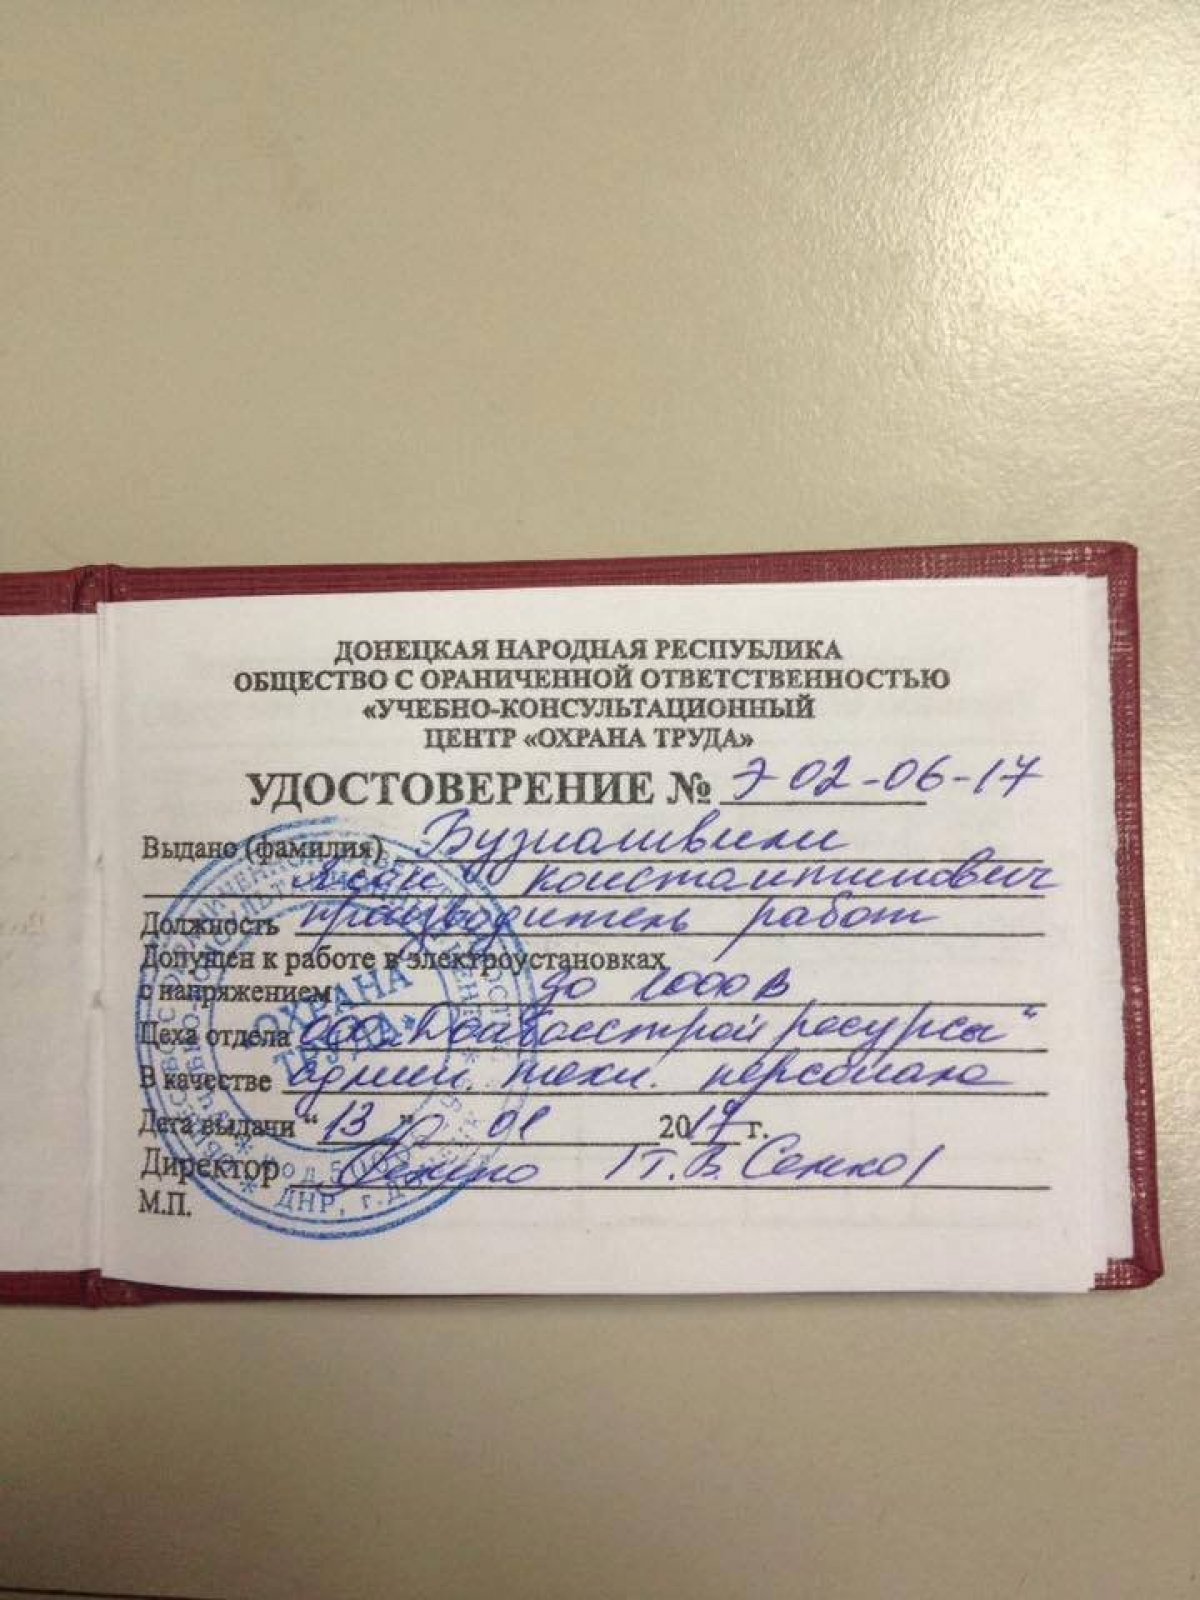 ДОНЕЦКАЯ НАРОДНАЯ РЕСПУБЛИКА
ОБЩЕСТВО С ОРАНИЧЕННОЙ ОТВЕТСТВЕННОСТЬЮ
«УЧЕБНО-КОНСУЛЬТАЦИОННЫЙ
ЦЕНТР «ОХРАНА ТРУДА»
УДОСТОВЕРЕНИЕ № Э 02-06-17
Выдано (фамилия)
Константинович
Должность производитель работ
Допущен к работе в электроустановках
с напряжением до 1000 В
Цеха отдела ООО
В качестве админ. техн. персонала
Дата выдачи "13" 01 2017 г.
Директор /Т.В. Сенко/
М.П.
ОХРАНА
ТРУДА»
ДНР, г.